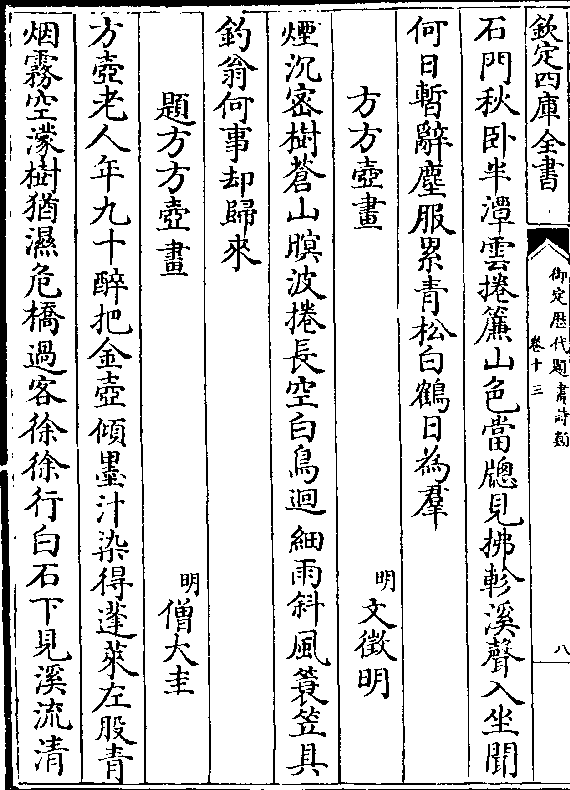 欽定四庫全書
御定歴代題畫詩類
卷十三
八
石門秋卧半潭雲捲簾山色當牕見拂軫溪聲入坐聞
何日暫辭塵服累青松白鶴日為羣
方方壺畫
明文徴明
煙沉密樹蒼山暝波捲長空白鳥迴細雨斜風蓑笠具
釣翁何事却歸來
題方方壺畫
明僧大圭
方壺老人年九十醉把金壺傾墨汁染得蓬萊左股青
烟霧空濛樹猶濕危橋過客徐徐行白石下見溪流清